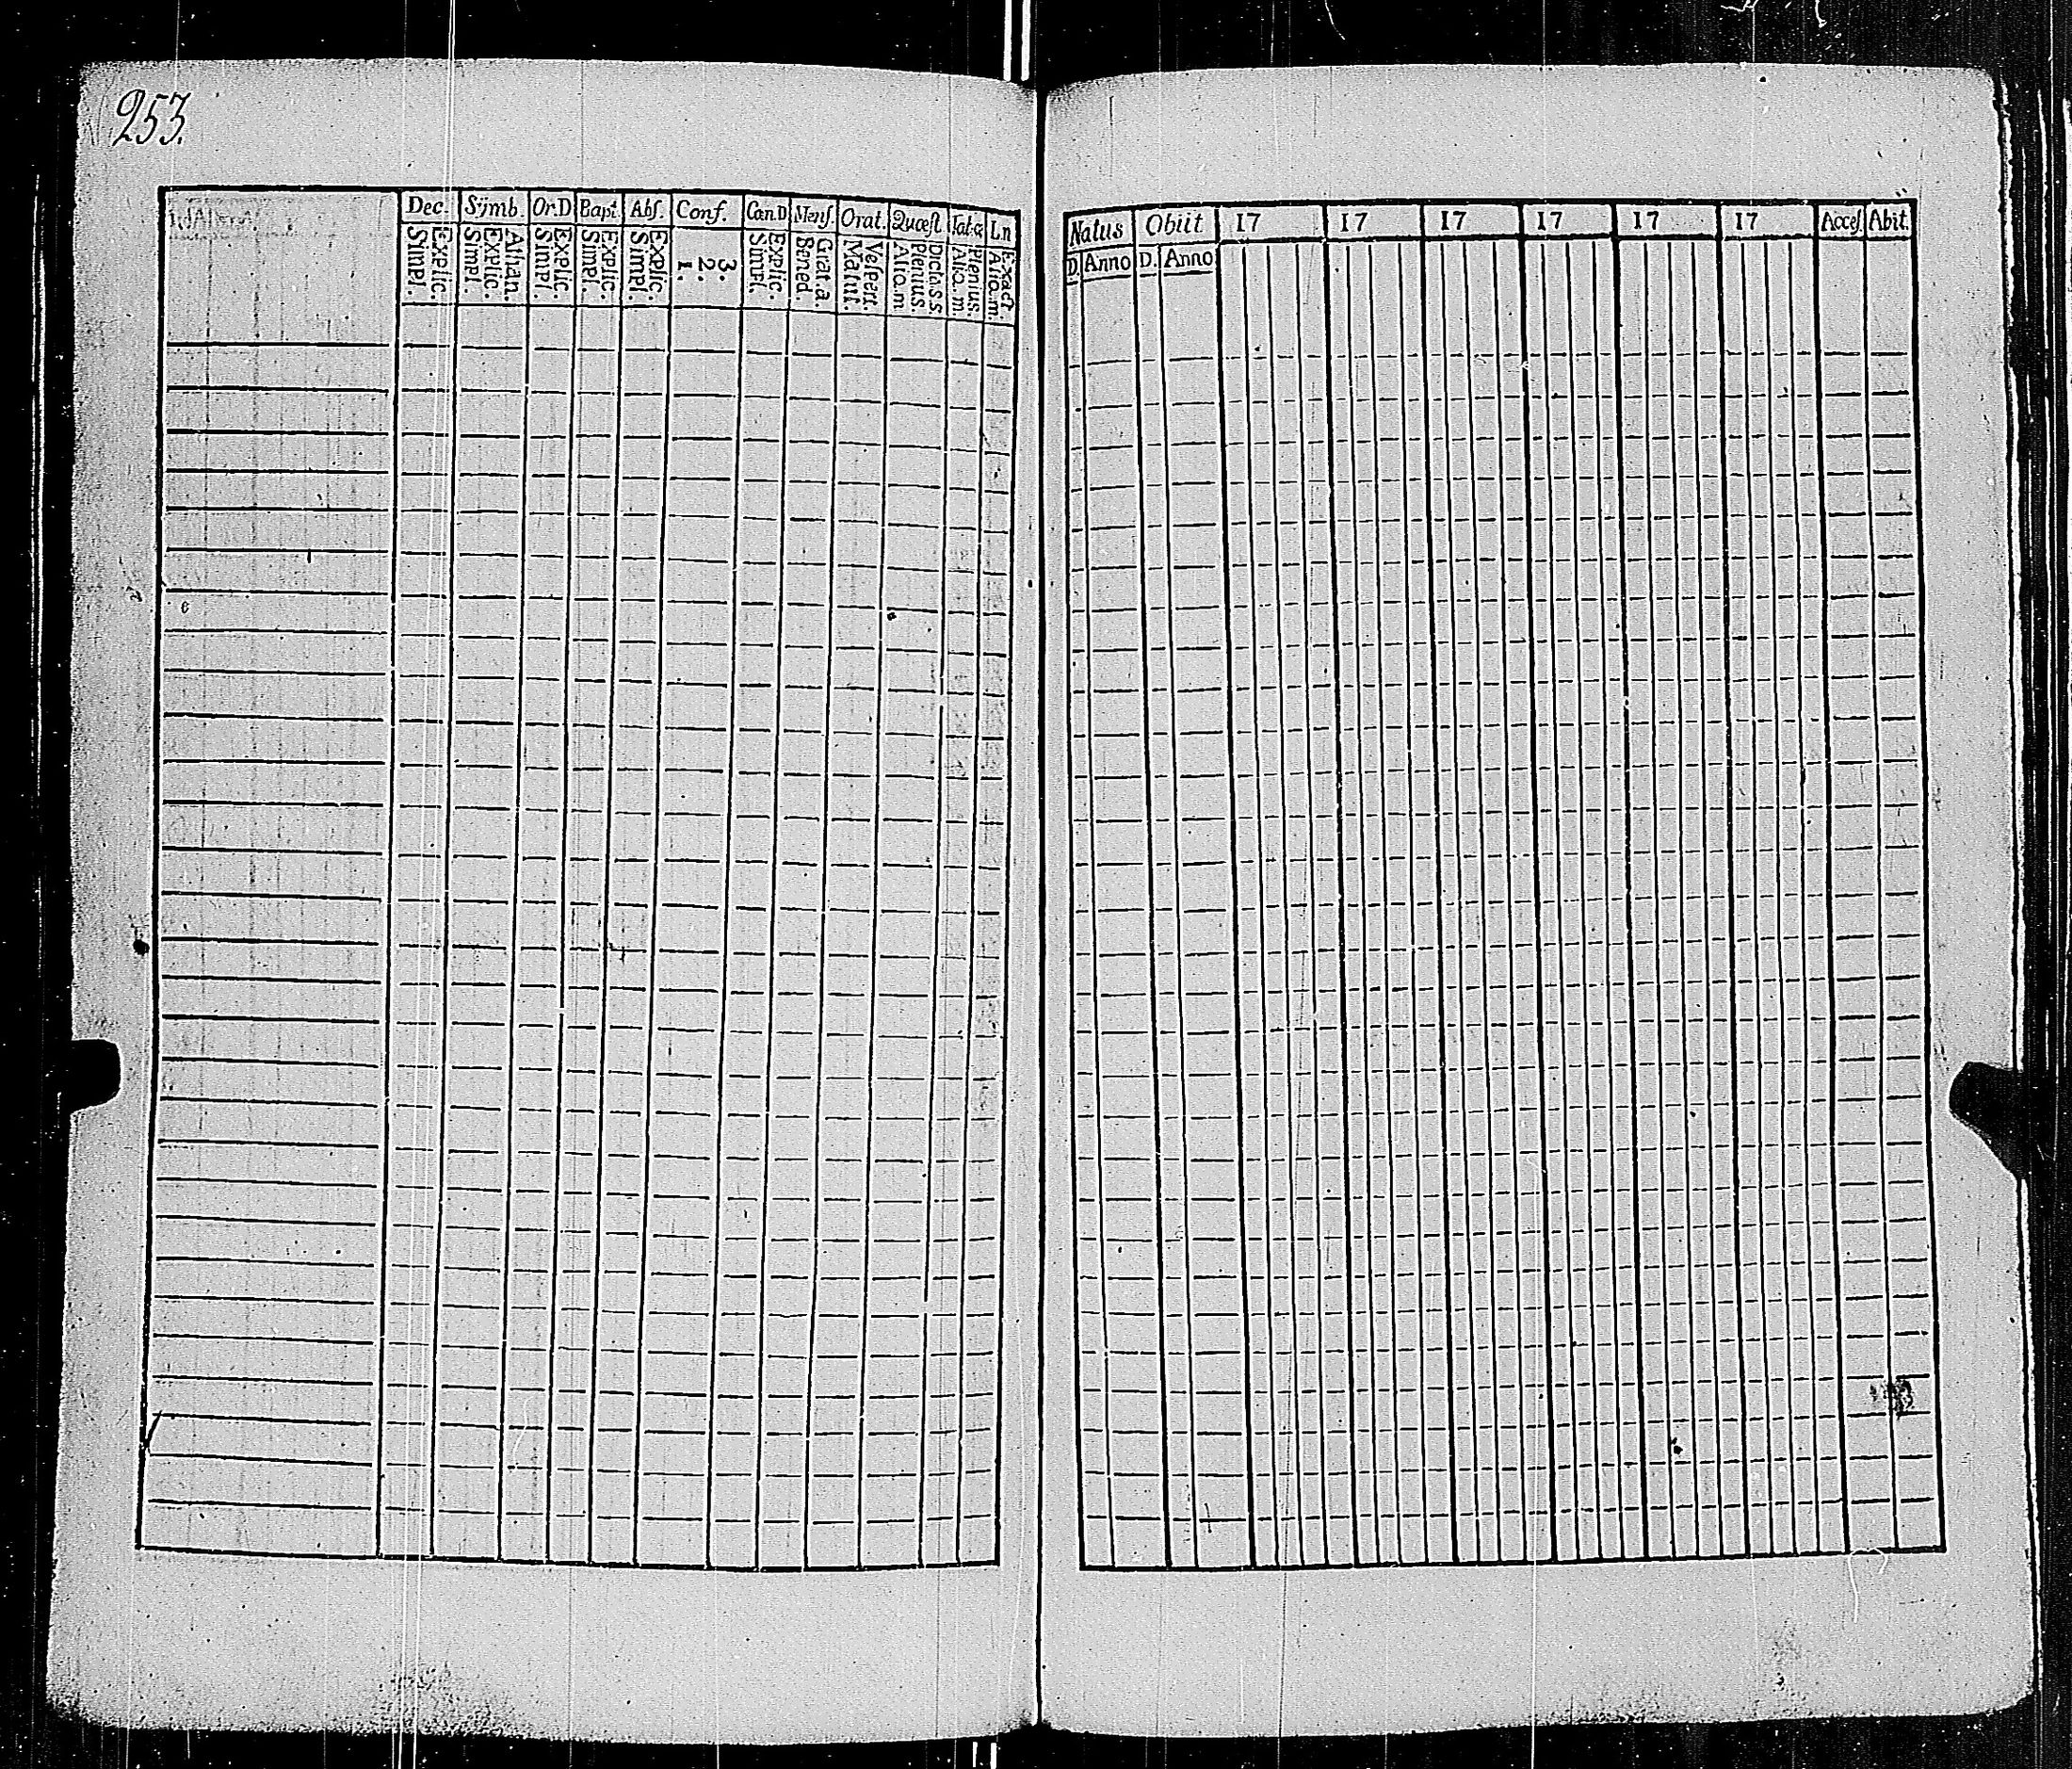 253.
Dec. Sÿmb. Or.D Bapt. Abs. Conf. Can.D Mens. Orat. Quæst. Tab.œ Ln
Explic. Simpl. Athan. Explic. Simpl. Explic. Simpl. Explic. Simpl. Explic. Simpl. 3. 2. 1. Explic. Simpl. Grat.a. Bened. Vespert. Matut. Dicta.s.s. Plenius. Alio.m Plenius. Alio.m. Exact. Alio.m
Natus Obiit 17 17 17 17 17 17 Acces. Abit.
D. Anno D. Anno